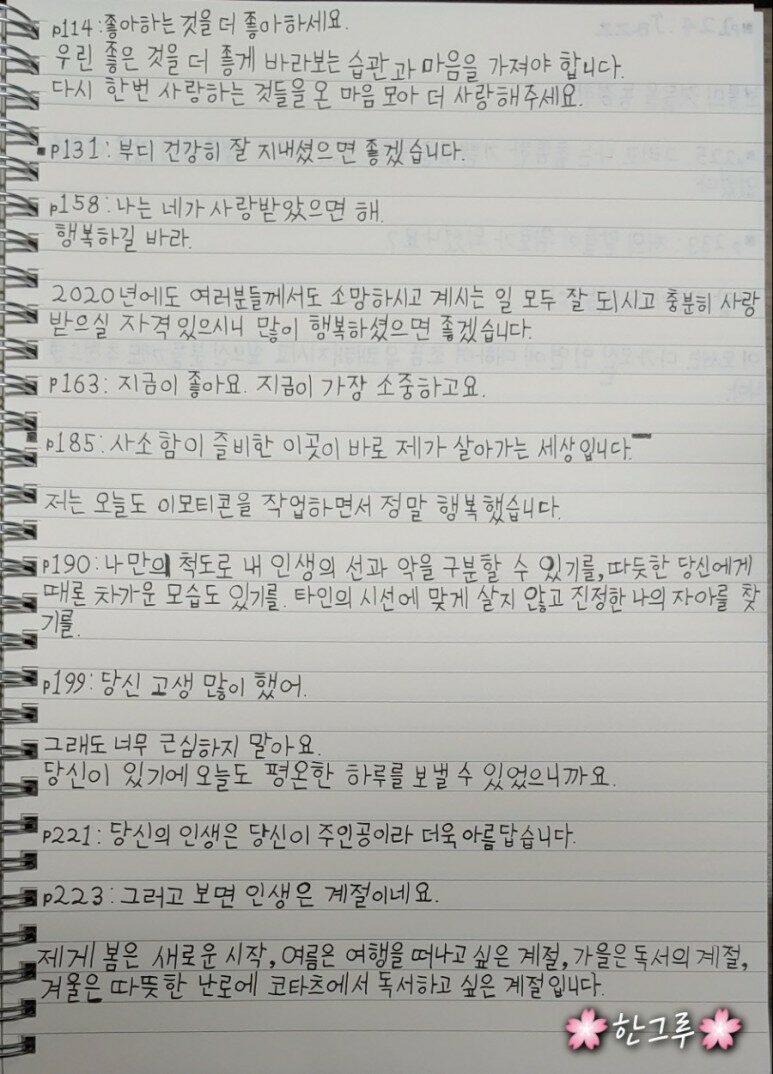 p114: 좋아하는 것을 더 좋아하세요.
우린 좋은 것을 더 좋게 바라보는 습관과 마음을 가져야 합니다.
다시 한번 사랑하는 것들을 온 마음 모아 더 사랑해주세요.
▪p131: 부디 건강히 잘 지내셨으면 좋겠습니다.
p158: 나는 네가 사랑받았으면 해.
행복하길 바라.
2020년에도 여러분들께서도 소망하시고 계시는 일 모두 잘 되시고 충분히 사랑
받으실 자격 있으시니 많이 행복하셨으면 좋겠습니다.
p163: 지금이 좋아요. 지금이 가장 소중하고요.
p185: 사소함이 즐비한 이곳이 바로 제가 살아가는 세상입니다.
저는 오늘도 이모티콘을 작업하면서 정말 행복했습니다.
p190: 나만의 척도로 내 인생의 선과 악을 구분할 수 있기를, 따뜻한 당신에게
때론 차가운 모습도 있기를. 타인의 시선에 맞게 살지 않고 진정한 나의 자아를 찾
기를.
p199: 당신 고생 많이 했어.
그래도 너무 근심하지 말아요.
당신이 있기에 오늘도 평온한 하루를 보낼 수 있었으니까요.
p221: 당신의 인생은 당신이 주인공이라 더욱 아름답습니다.
p223: 그러고 보면 인생은 계절이네요.
제게 봄은 새로운 시작, 여름은 여행을 떠나고 싶은 계절, 가을은 독서의 계절,
겨울은 따뜻한 난로에 코타츠에서 독서하고 싶은 계절입니다.
🌸한그루🌸